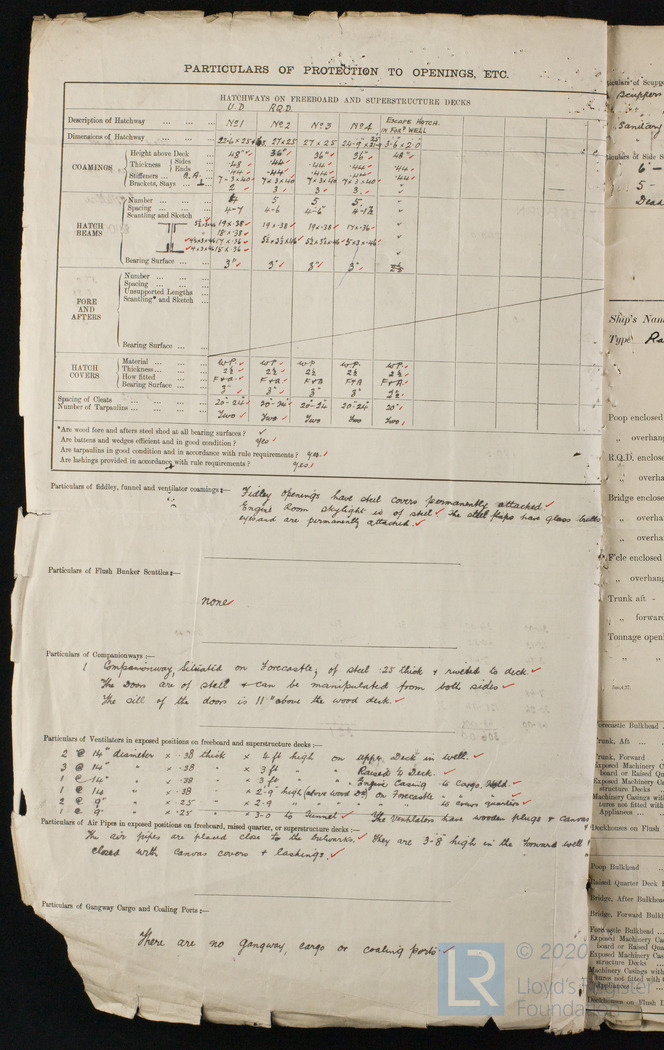 PARTICULARS OF PROTECTION TO OPENINGS, ETC.
HATCHWAYS ON FREEBOARD AND SUPERSTRUCTURE DECKS
U.D. R.Q.D.
Description of Hatchway ... ... ... No 1 No 2 No 3 No 4 ESCAPE HATCH IN FORD WELL
Dimensions of Hatchway ... ... ... 27 x 25 27 x 25 3-6 x 2-0
COAMINGS
Height above Deck 48" 36" 36" 36" 48"
Thickness Sides .48 .44 .44 .44 .44
Ends .44 .44 .44 .44 .44
Stiffeners ... 7 x 3 x 40 7 x 3 x 40 7 x 3 x 40
Brackets, Stays ... 2 3 3 3
HATCH BEAMS
Number ... ... ... 5 5 5
Spacing ... ... ... 4-7 4-6 4-6
Scantling and Sketch 19 x .38 19 x .38 19 x .38 17 x .36
18 x .38
17 x .36 5½ x 3½ x 46 5½ x 3½ x 46 5 x 3 x .46
15 x .36
Bearing Surface ... ... 3" 3" 3" 3" 2½
FORE AND AFTERS
Number ... ... ...
Spacing ... ... ...
Unsupported Lengths
Scantling* and Sketch ...
Bearing Surface ... ...
HATCH COVERS
Material ... ... ... W.P. W.P. W.P. W.P. W.P.
Thickness ... ... ... 2½ 2½ 2½ 2½ 2½
How fitted ... ... F & A F & A F & A F & A F & A
Bearing Surface ... ... 3" 3" 3" 3" 2½
Spacing of Cleats ... ... ... 20"-24" 20"-24" 20"-24" 20"-24" 20"
Number of Tarpaulins ... ... ... Two Two Two Two Two
*Are wood fore and afters steel shod at all bearing surfaces?
Are battens and wedges efficient and in good condition? yes
Are tarpaulins in good condition and in accordance with rule requirements? yes.
Are lashings provided in accordance with rule requirements? yes.
Particulars of fiddley, funnel and ventilator coamings:— Fidley openings have steel covers permanently attached.
Engine Room skylight is of steel. The steel flaps have glass bullseyes
and are permanently attached.
Particulars of Flush Bunker Scuttles:—
none
Particulars of Companionways:—
1 Companionway, Situated on Forecastle, of steel .25 thick & riveted to deck.
The Doors are of steel & can be manipulated from both sides
The sill of the doors is 11" above the wood deck.
Particulars of Ventilators in exposed positions on freeboard and superstructure decks:—
2 @ 14" diameter x .38 thick x 4 ft high on upper Deck in well.
3 @ 14" " x .38 " x 3 ft " " Raised ¼ Deck.
1 @ 14" " x .38 " x 3 ft " " Engine Casing to Cargo Hold.
1 @ 14 " x .38 " x 2-9" high (above wood Dk) on Forecastle
2 @ 9" " x .25" " x 2-9 " " " to crews quarters
1 @ 9" " x .25" " x 3-0 to Tunnel The Ventilators have wooden plugs & canvas
Particulars of Air Pipes in exposed positions on freeboard, raised quarter, or superstructure decks:—
The air pipes are placed close to the bulwarks. They are 3-8 high in the forward well &
closed with canvas covers & lashings.
Particulars of Gangway Cargo and Coaling Ports:—
There are no gangway, cargo or coaling ports
LR
© 2020
Lloyd's Register
Foundation
Scuppers
Sanitary
6 -
5 -
Dead
Ship's Nam
Type Ra
Poop enclosed
„ overhang
R.Q.D. enclose
„ overha
Bridge enclose
„ overha
„ overha
F'cle enclosed
„ overhang
Trunk aft -
„ forward
Tonnage openi
„ „
Forecastle Bulkhead
Trunk, Aft ...
Trunk, Forward
Exposed Machinery C
board or Raised Qu
Exposed Machinery Cas
structure Decks ...
Machinery Casings with
tures not fitted with
Appliances ...
Deckhouses on Flush
Poop Bulkhead ...
Raised Quarter Deck B
Bridge, After Bulkhead
Bridge, Forward Bulkh
Forecastle Bulkhead ...
Exposed Machinery Cas
board or Raised Qua
Exposed Machinery Cas
structure Decks ...
Machinery Casings with
tures not fitted with
Appliances ...
Deckhouses on Flush D